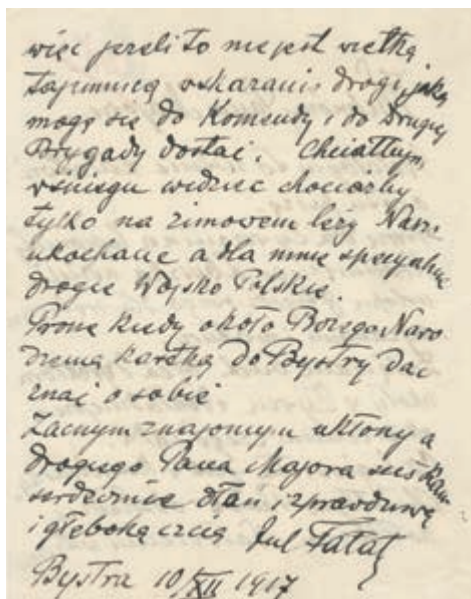 więc jeżeli to nie jest wielką
tajemnicą wskazanie drogi jaką
mogę się do Komendy i do Drugiej
Brygady dostać. Chciałbym
w śniegu widzieć chociażby
tylko na zimowem leży Nasze
ukochane a dla mnie specyalnie
drogie Wojsko Polskie.
Proszę kiedy około Bożego Naro
dzenia kartką do Bystry dać
znać o sobie
Zacnym znajomym ukłony a
drogiego Pana Majora ściskam
serdecznie dłoń i z prawdziwą
i głęboką czcią Jul Fałat
Bystra 10/XII 1917